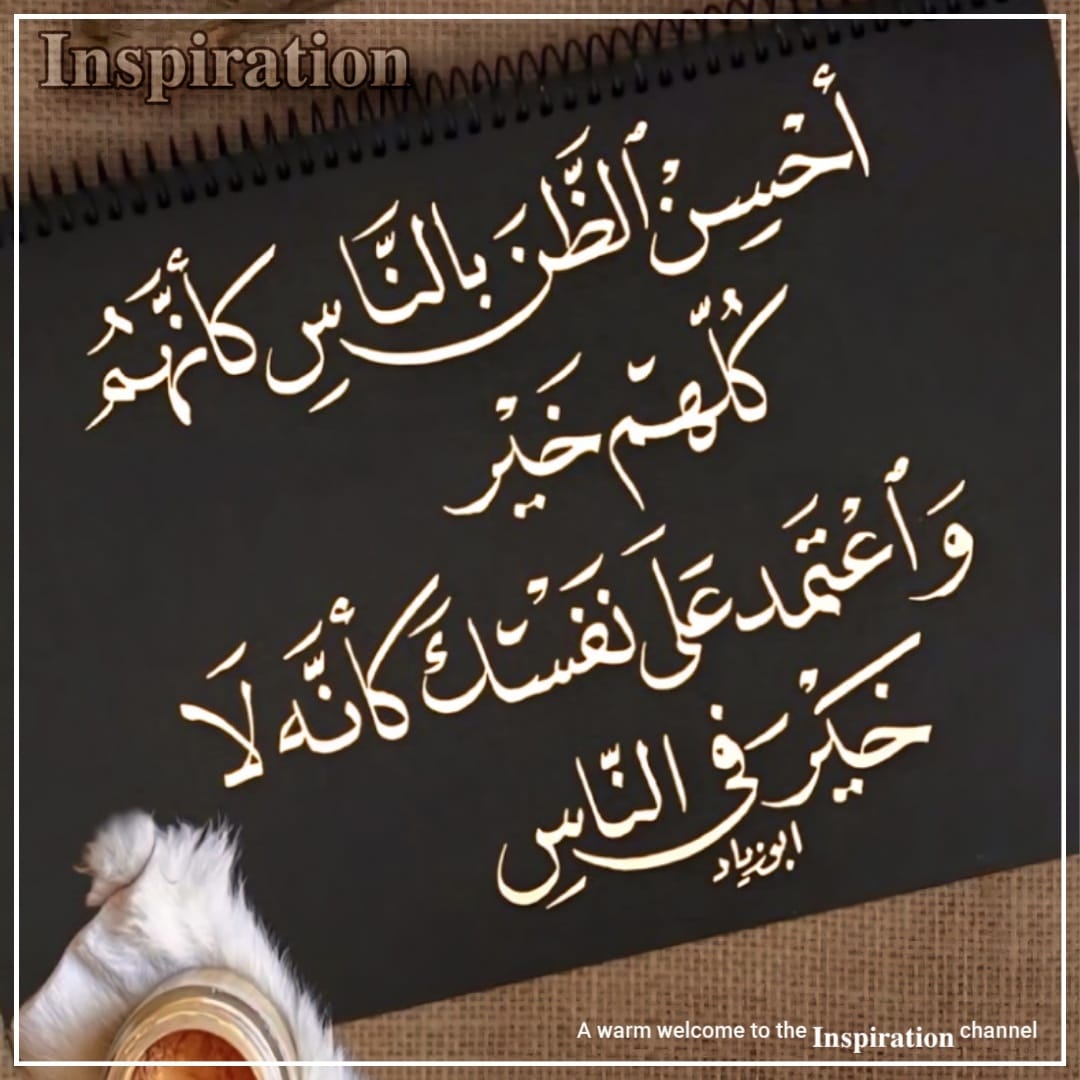 Inspiration
أَحْسِنْ ٱلظَّنَ بالنَّاسِ كأَنَّهُمُ
كُلّهمّ خَيْر
وَٱعْتَمد عَلَى نَفَسْكَ كأَنَّه لَا
خَيْرَ فى النّاسِ
ابوزياد
A warm welcome to the Inspiration channel